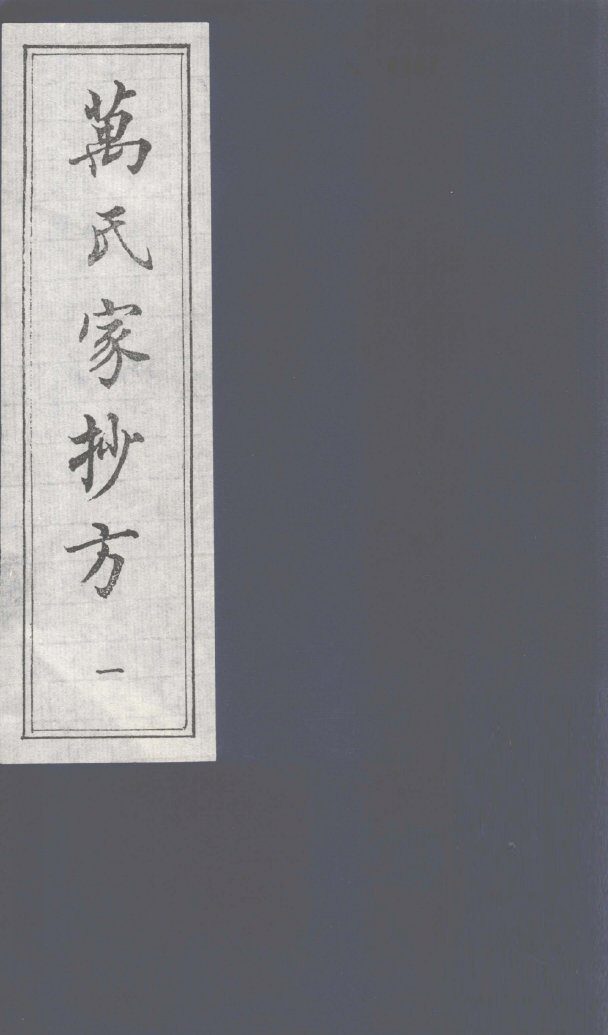 萬氏家抄方 一